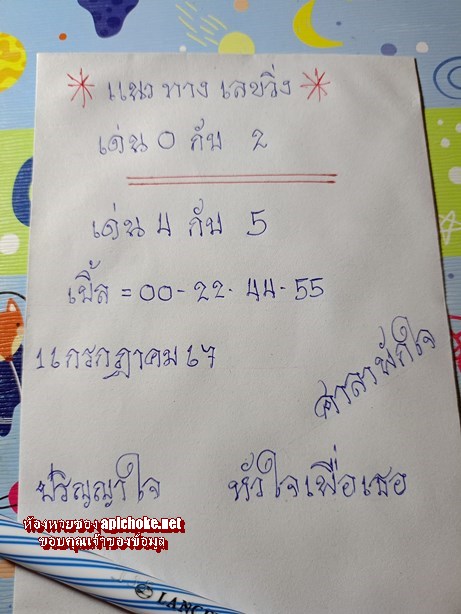 แนวทางเลขวิ่ง
เด่น 0 กับ 2
เด่น 4 กับ 5
เบิ้ล = 00-22-44-55
1 กรกฎาคม 67
ศาลาพักใจ
ปริญญาใจ
หัวใจเพื่อเธอ
ห้องหวยของ apichoke.net
ขอบคุณเจ้าของข้อมูล
LANC